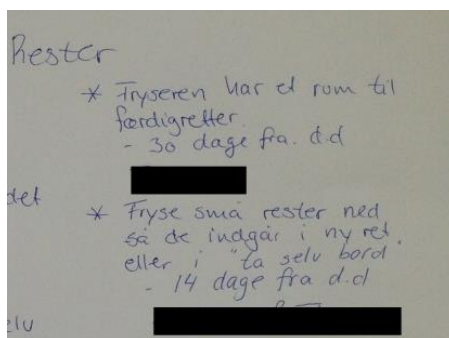 Rester
* Fryseren har et rum til
færdigretter.
- 30 dage fra. d.d
det
* Fryse små rester ned
så de indgår i ny ret.
eller i "ta selv bord.
- 14 dage fra d.d
elv